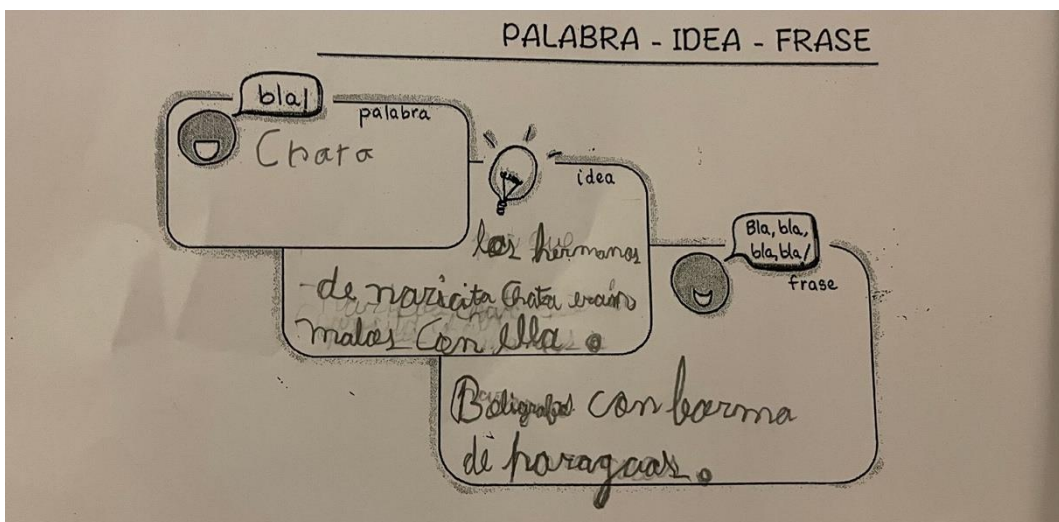 PALABRA - IDEA - FRASE
bla!
palabra
Chata
idea
los hermanos
de naricita Chata eran
malos Con ella.
Bla, bla,
bla, bla!
frase
Boligrafos con borma
de paraguas.